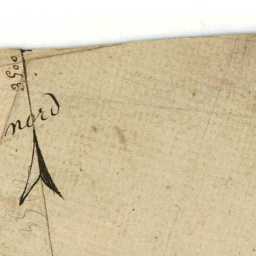 3500
nord